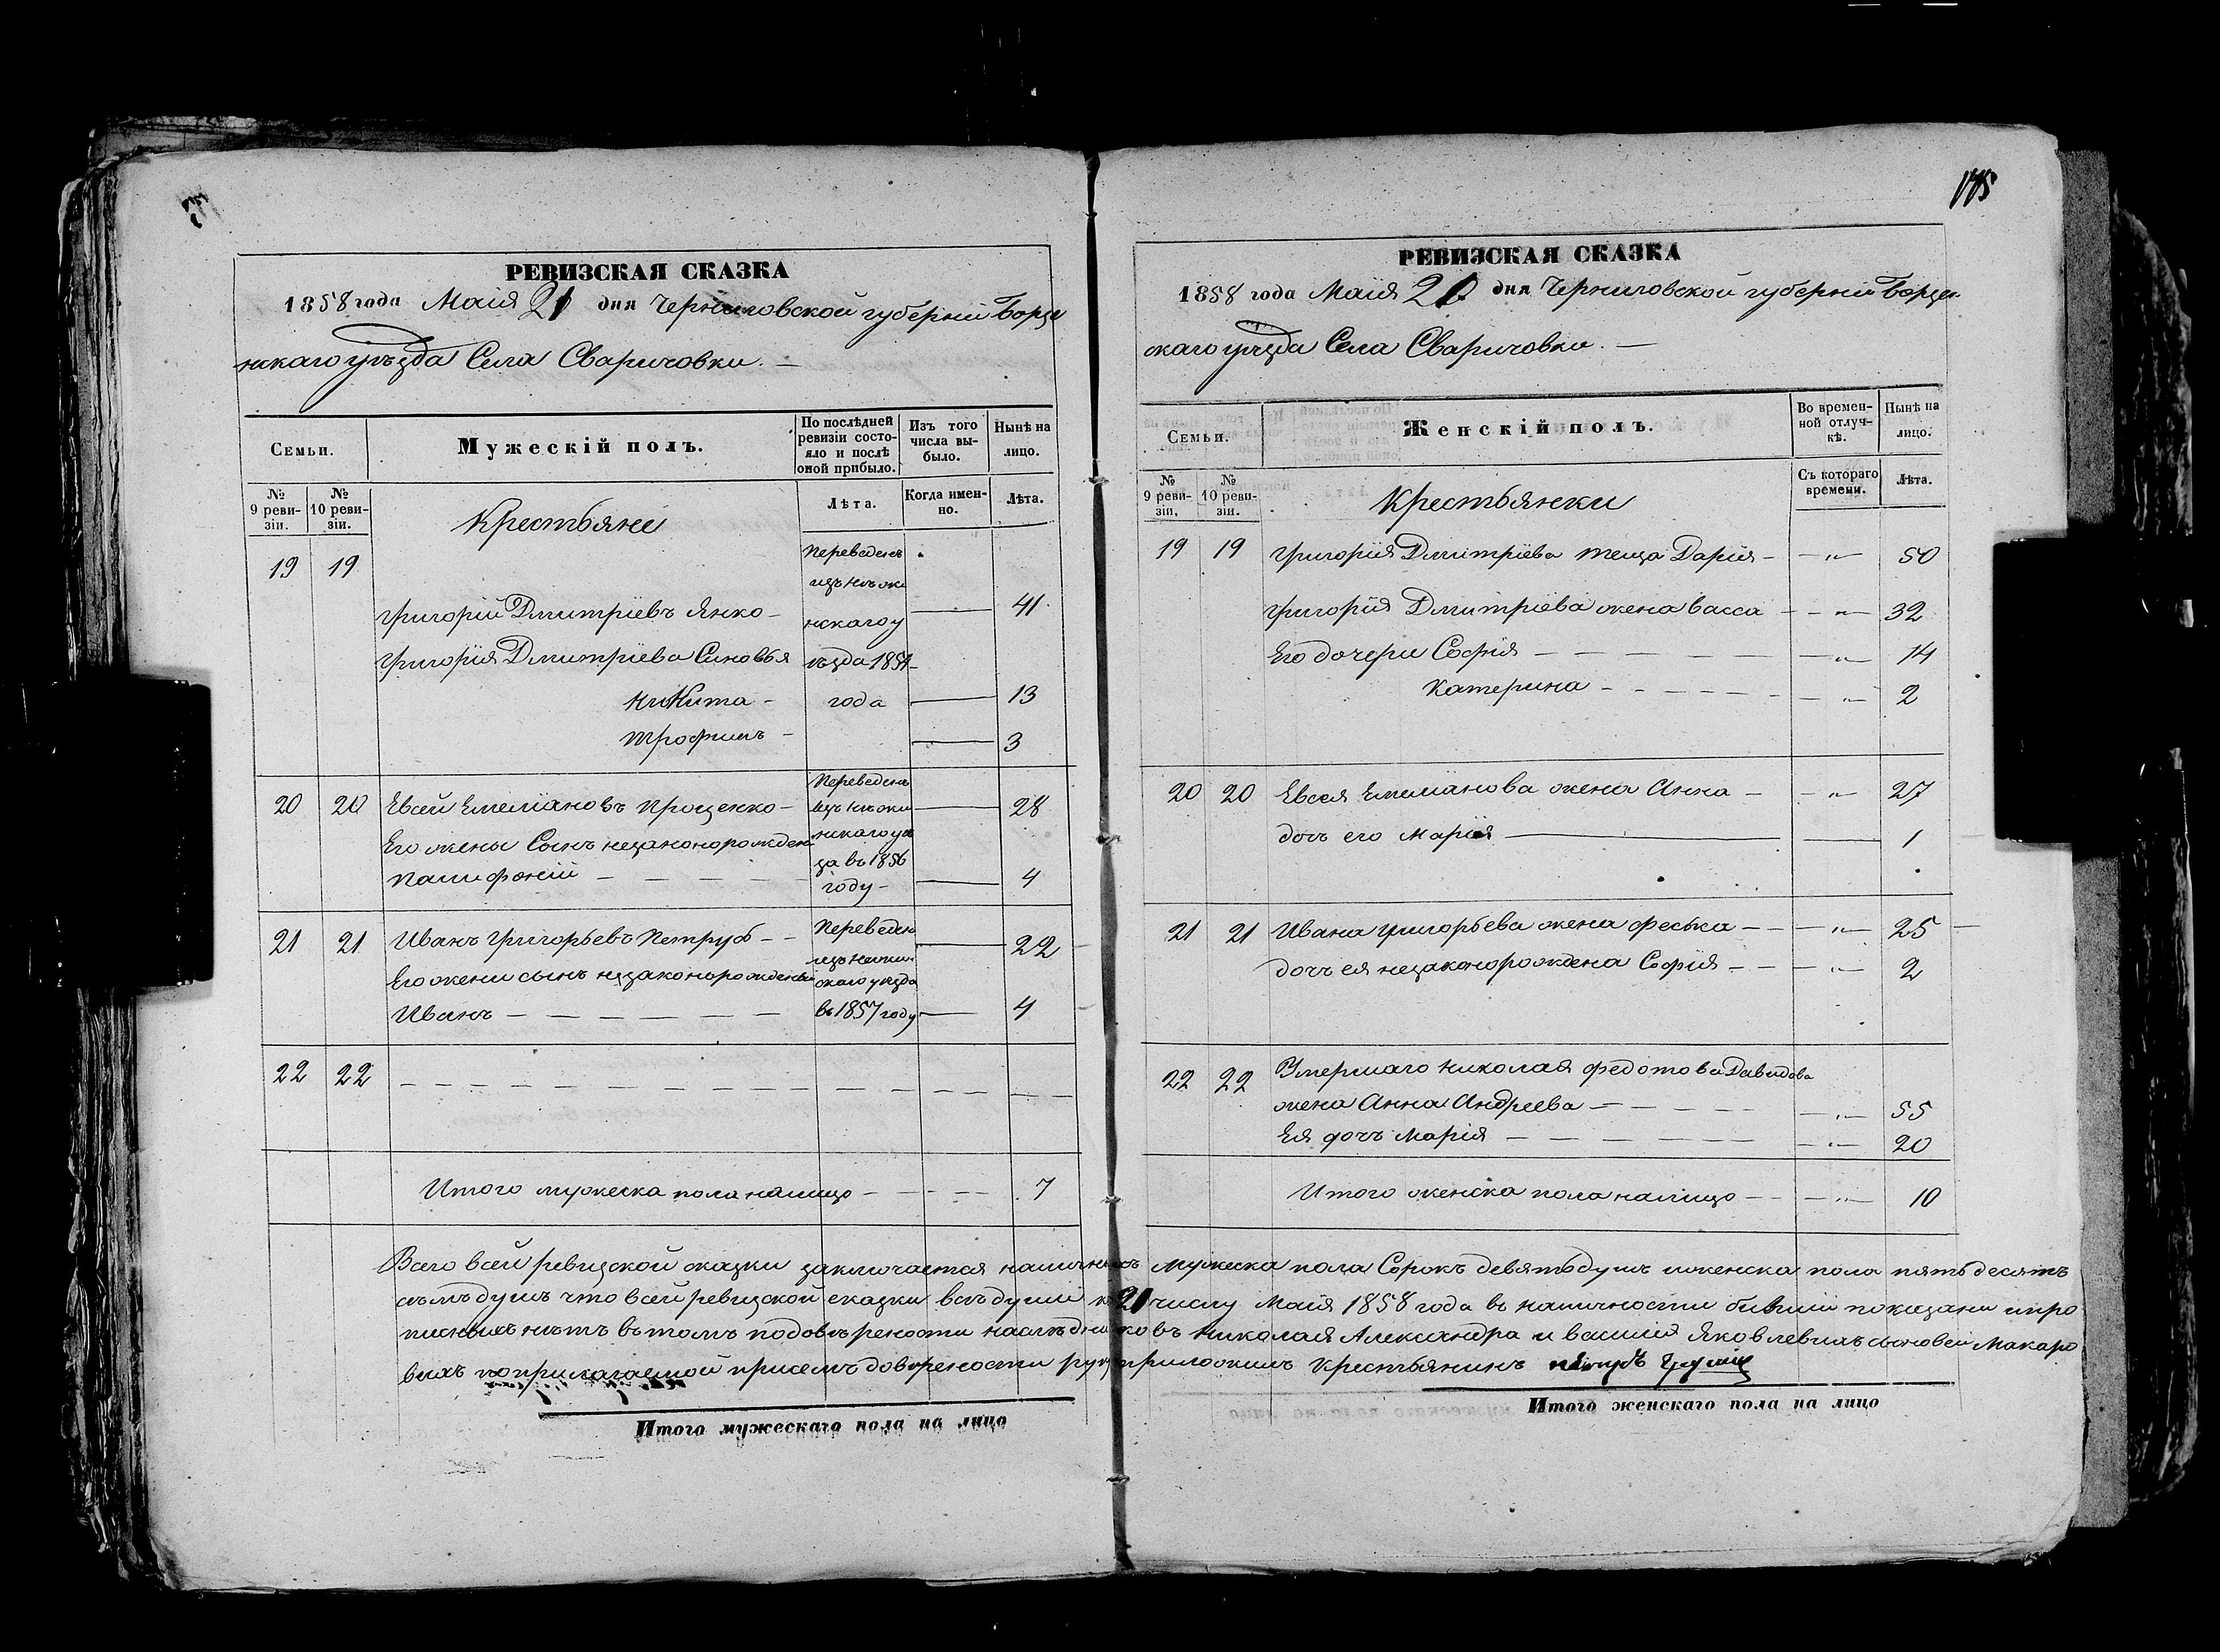 175
РЕВИЗСКАЯ СКАЗКА
1858 года Маія 21 дня Черниговской губерніи Борзе
нскаго уѣзда Села Сваричовки. —
Семьи.
Мужескій полъ.
По послѣдней ревизіи состояло и послѣ оной прибыло.
Изъ того числа выбыло.
Нынѣ на лицо.
№ 9 ревизіи.
№ 10 ревизіи.
Крестьяне
Лѣта.
Когда именно.
Лѣта.
19 19
Переведенъ
изъ нѣжи
Григорій Дмитріевъ Янко — нскаго у — 41.
Григорія Дмитріева Синовья ѣзда 1851
Никита — года — 13
Трофимъ — — 3
Переведенъ
20 20 Евсей Емеліановъ Проценко — изъ нѣжи — 28
Его жены Сынъ незаконорожден нскаго уѣ
за въ 1856
Памфоній — году — — 4
Переведен
21 21 Иванъ Григорьевъ Петрубъ — — 22
изъ нѣжин
Его жени сынъ незаконорожденый скаго уѣзда
Иванъ — въ 1857 году — 4
22 22
Итого мужеска пола налицо — 7
РЕВИЗСКАЯ СКАЗКА
1858 года Маія 21 дня Черниговской губерніи Борзен
скаго уѣзда Села Сваричовки. —
Семьи.
Женскій полъ.
Во временной отлучкѣ.
Нынѣ на лицо.
№ 9 ревизіи.
№ 10 ревизіи.
Крестьянки
Съ котораго времени.
Лѣта.
19 19 Григорія Дмитріева теща Дарія — — „ — 50
Григорія Дмитріева жена Васса — — „ — 32
Его дочери Софія — — „ — 14
Катерина — — „ — 2
20 20 Евсея Емеліанова жена Анна — — „ — 27
дочь его Марія — — 1
21 21 Ивана Григорьева жена Феська — — „ — 25
дочь ея незаконорождена Софія — — „ — 2
22 22 Умершаго Николая Федотова Давидова
жена Анна Андреева — — „ — 55
Ея дочь Марія — — „ — 20
Итого женска пола налицо — — „ — 10
Всего всей ревизской сказки заключается наличныхъ мужеска пола Сорокъ девять душъ и женска пола пятьдесятъ
семь душъ что всей ревизской сказки всѣ души к 21 числу Маія 1858 года въ наличности бывшіи показани и про
писныхъ нѣтъ въ томъ по довѣрености наслѣдниковъ Николая Александра и Василія Яковлевыхъ сыновей Макаро
выхъ по прилагаемой присемъ довѣрености руку приложилъ Крестьянинъ
Итого мужескаго пола на лицо
Итого женскаго пола на лицо